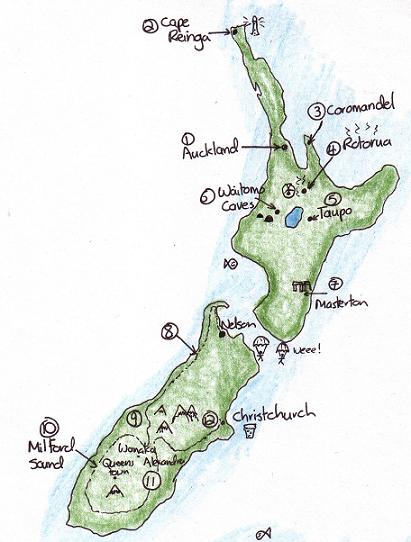 ② Cape
Reinga
③ Coromandel
① Auckland
④ Rotorua
⑥ Waitomo
Caves
⑤
Taupo
⑦
Masterton
⑧
Nelson
weee!
⑨
⑫ Christchurch
⑩
Milford
Sound
Wanaka
Queens
town
Alexandra
⑪